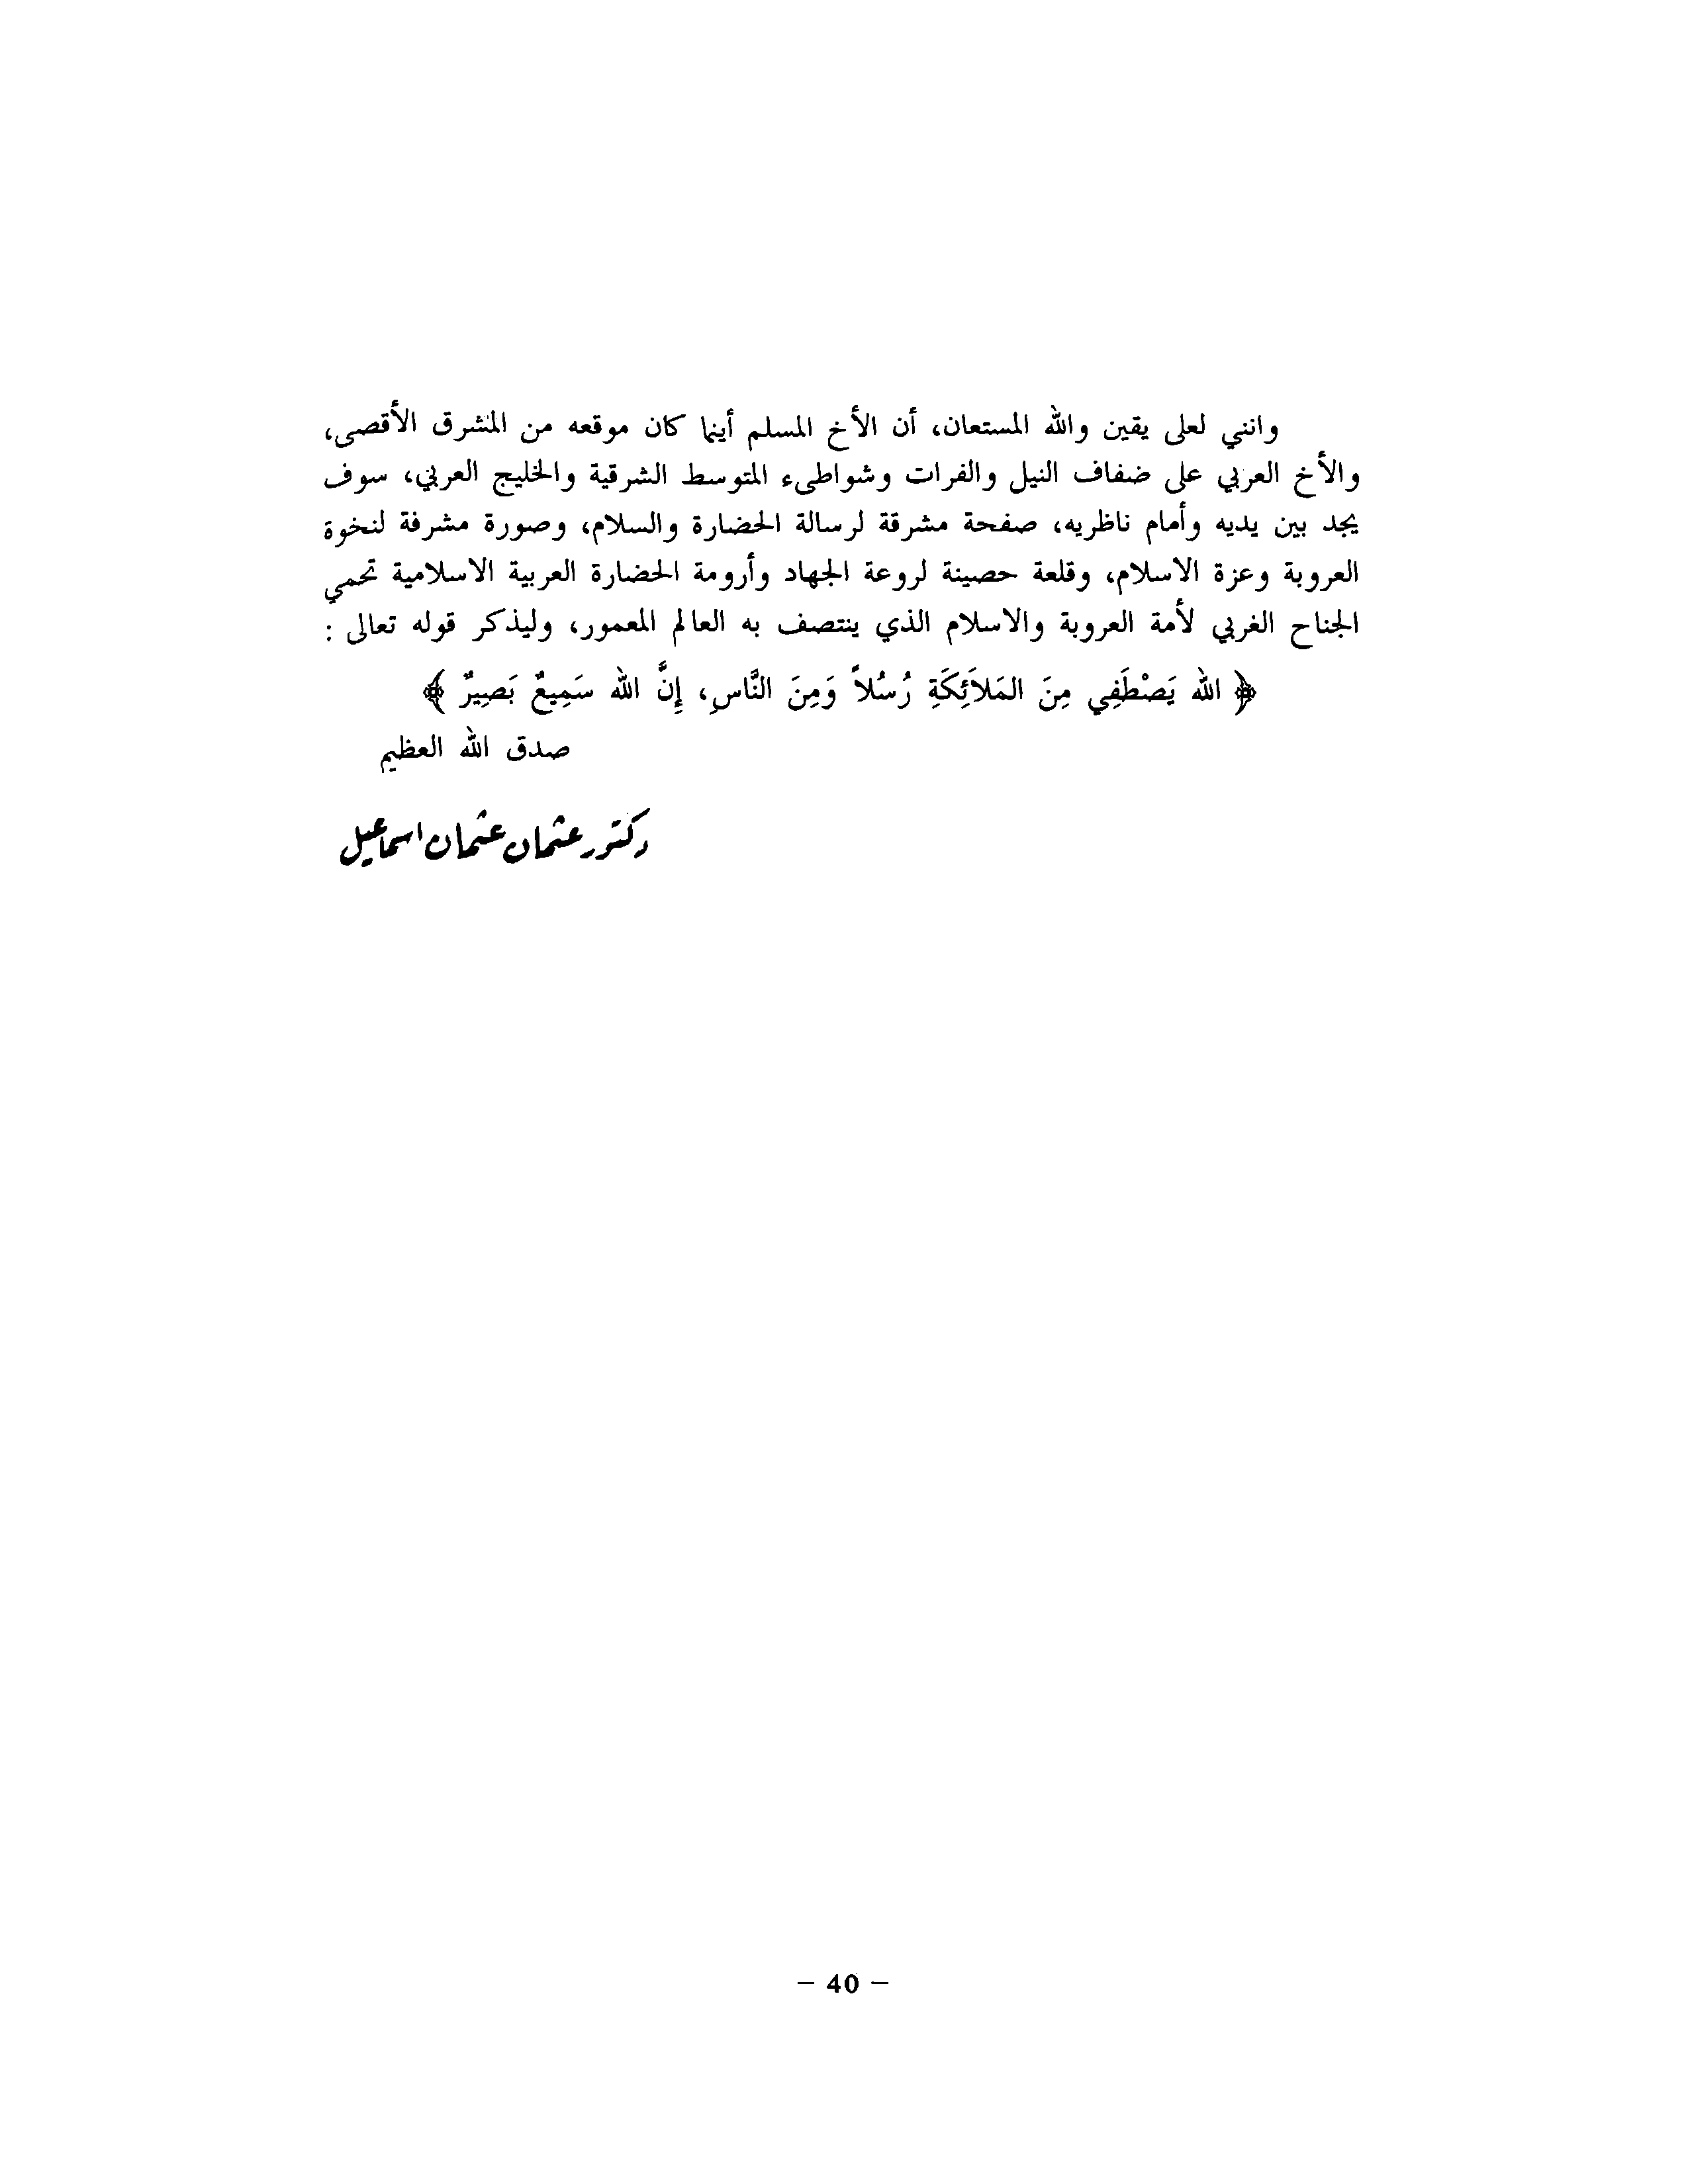 وانني لعلى يقين والله المستعان، أن الأخ المسلم أينما كان موقعه من المشرق الأقصى،
والأخ العربي على ضفاف النيل والفرات وشواطىء المتوسط الشرقية والخليج العربي، سوف
يجد بين يديه وأمام ناظريه، صفحة مشرقة لرسالة الحضارة والسلام، وصورة مشرفة لنخوة
العروبة وعزة الاسلام، وقلعة حصينة لروعة الجهاد وأرومة الحضارة العربية الاسلامية تحمي
الجناح الغربي لأمة العروبة والاسلام الذي ينتصف به العالم المعمور، وليذكر قوله تعالى :
﴿ الله يَصْطَفِي مِنَ المَلاَئِكَةِ رُسُلاً وَمِنَ النَّاسِ، إِنَّ الله سَمِيعٌ بَصِيرٌ ﴾
صدق الله العظيم
دكتور عثمان عثمان اسماعيل
– 40 –